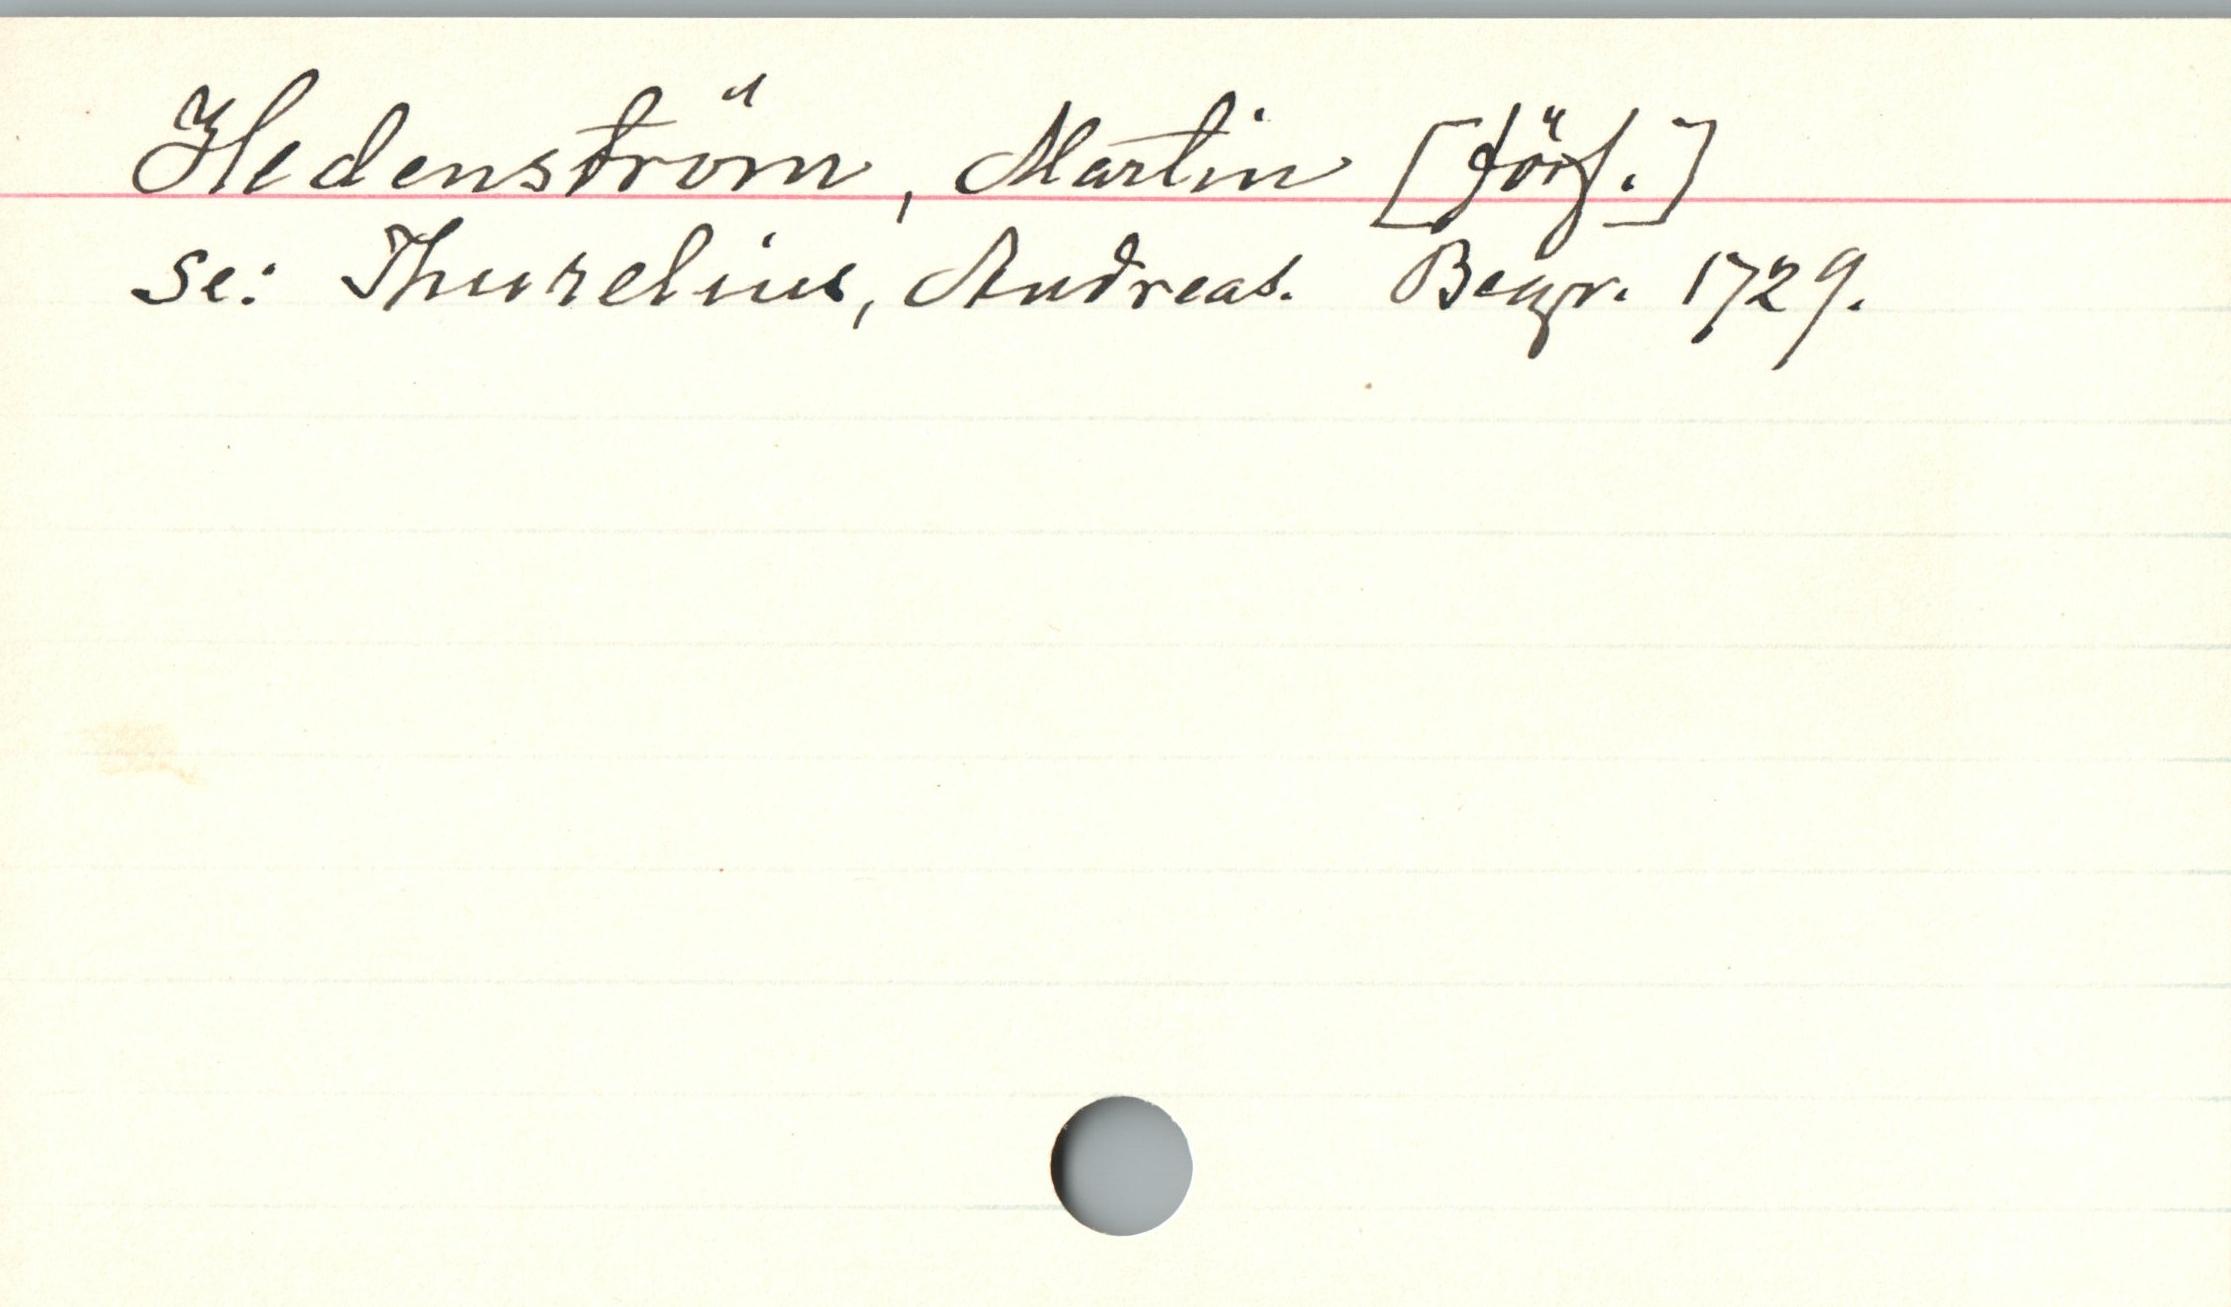 Hedenström, Martin [förf.]
se: Thurelius, Andreas. Begr. 1729.